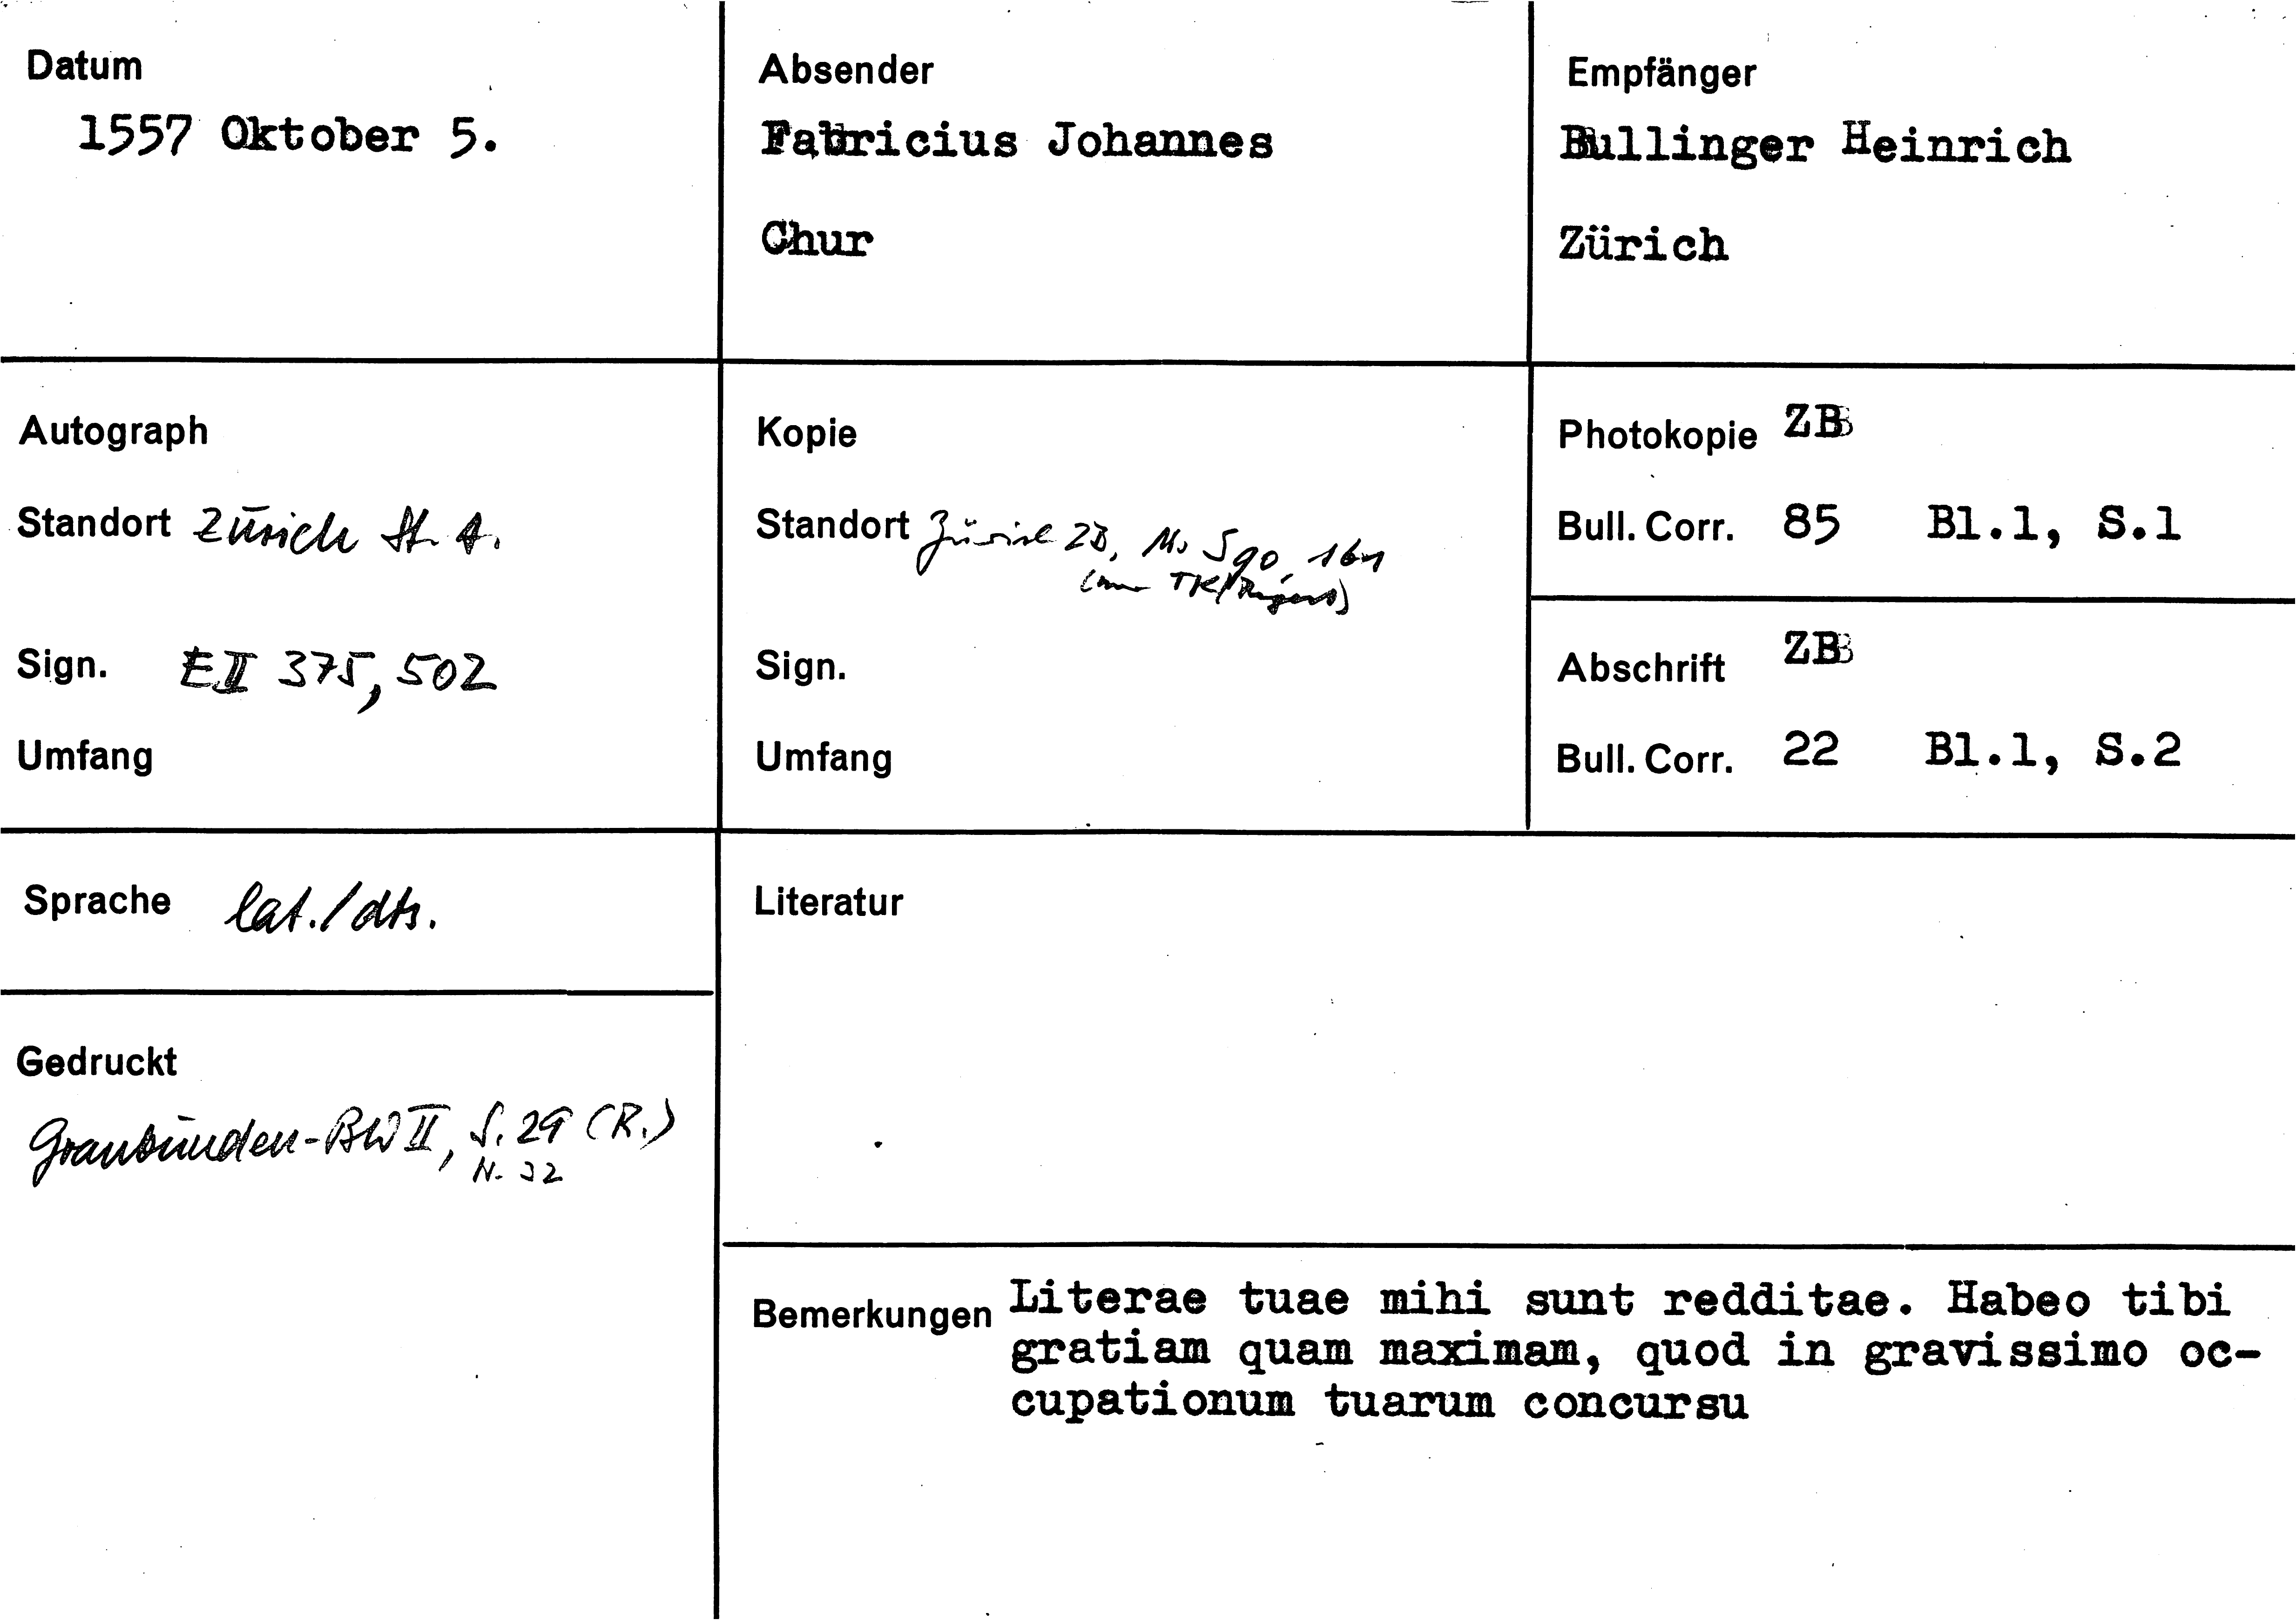 Datum
1557 Oktober 5.
Absender
Fabricius Johannes
Chur
Empfänger
Bullinger Heinrich
Zürich
Autograph
Standort Zürich St. A.
Sign. E II 375, 502
Umfang
Kopie
Standort Zürich ZB, Ms S 90, 161
TK/
Sign.
Umfang
Photokopie ZB
Bull. Corr. 85 Bl.1, S.1
Abschrift ZB
Bull. Corr. 22 Bl.1, S.2
Sprache lat./dts.
Gedruckt
Graubünden-BW II, S. 29 (R.)
N. 32
Literatur
Bemerkungen Literae tuae mihi sunt redditae. Habeo tibi
gratiam quam maximam, quod in gravissimo oc-
cupationum tuarum concursu